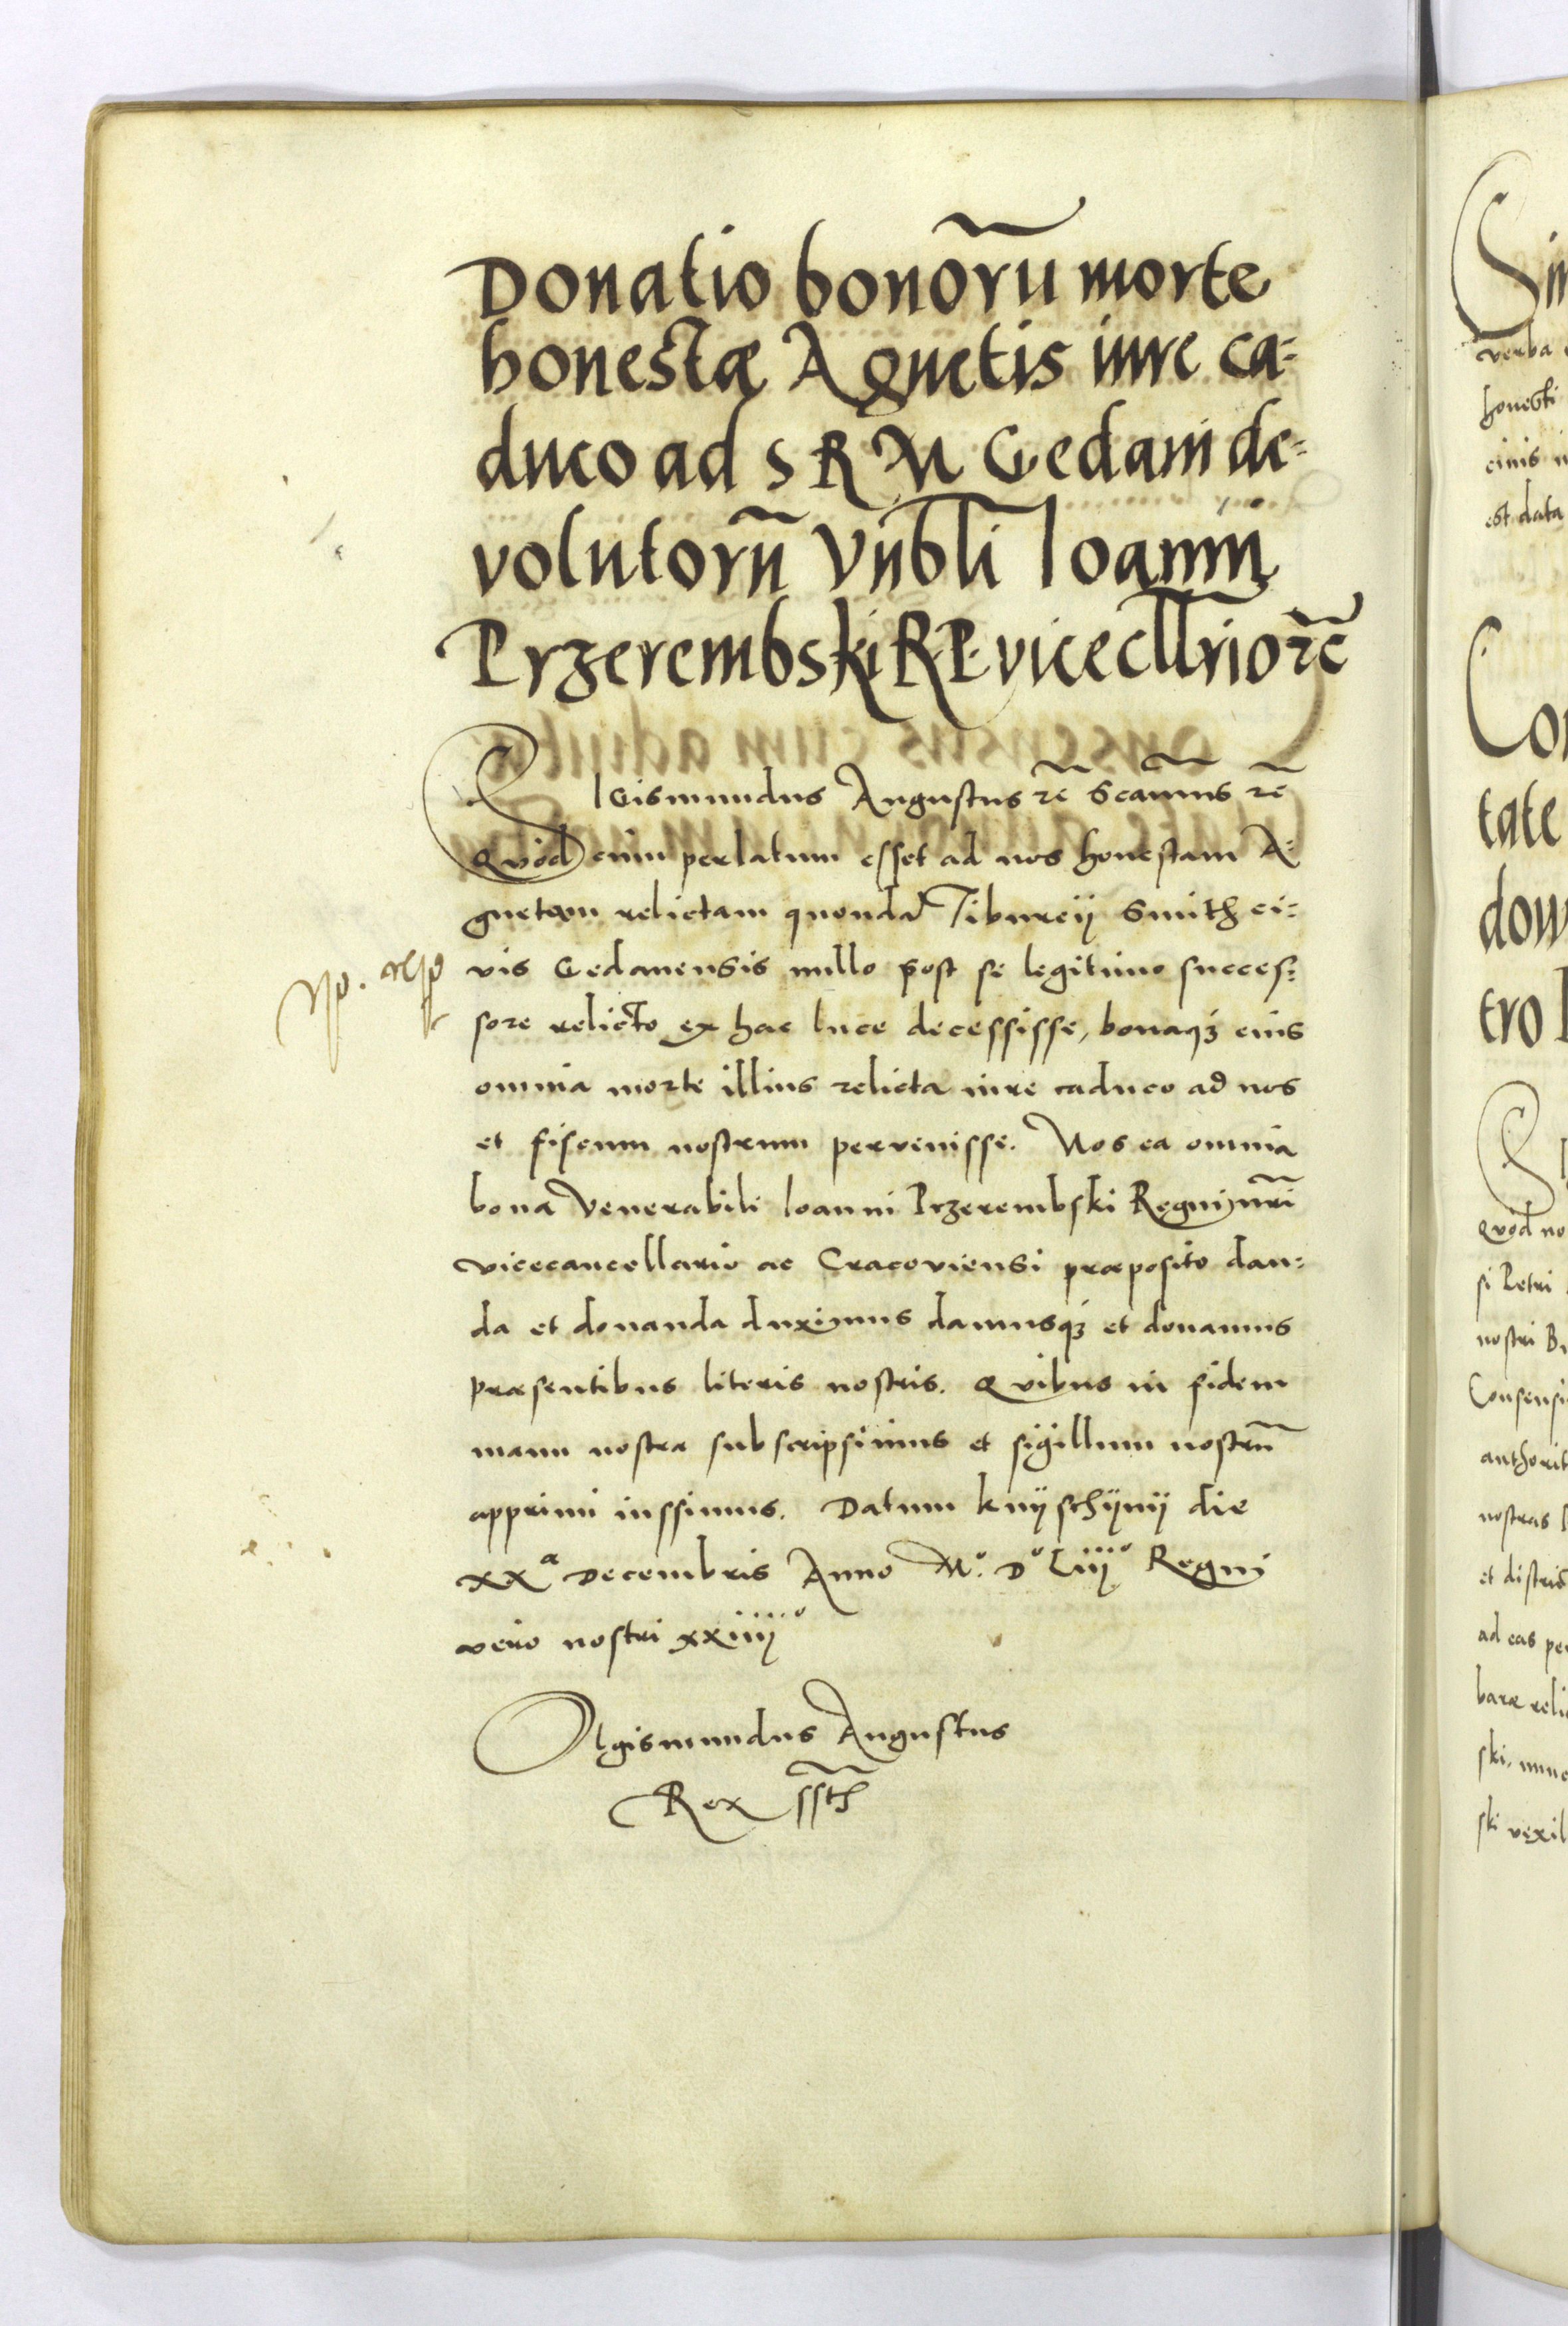 Donatio bonorũ morte
honestæ Agnetis iure ca=
duco ad S R M Gedani de=
volutorũ Vnbli Ioanni
Przerembski R P vicecllrio r̃c
SIGismundus Augustus r̃c Scamus r̃c
Quod cum perlatum esset ad nos honestam A=
gnetem relictam quondã Tiburcij Smith ci=
vis Gedanensis nullo post se legitimo succes=
sore relicto ex hac luce decessisse, bonaqȝ eius
omnia morte illius relicta iure caduco ad nos
et fiscum nostrum pervenisse. Nos ea omnia
bona Venerabili Ioanni Przerembski Regni nr̃i
vicecancellario ac Cracoviensi præposito dan=
da et donanda duximus damusqȝ et donamus
præsentibus literis nostris. Quibus in fidem
manu nostra subscripsimus et sigillum nostrũ
apprimi iussimus. Datum Knyschÿnÿ die
XXª Decembris Anno M.º Dº Liiijº Regni
vero nostri xxiiiijº
Sigismundus Augustus
Rex sst
Sin
verba
honesti
civis
est data
Con
tate
dow
tro
Quod no
si Petri
nostri
Consensu
authorit
nostras
et distric
ad eas per
baræ relic
ski, nunc
ski vexil